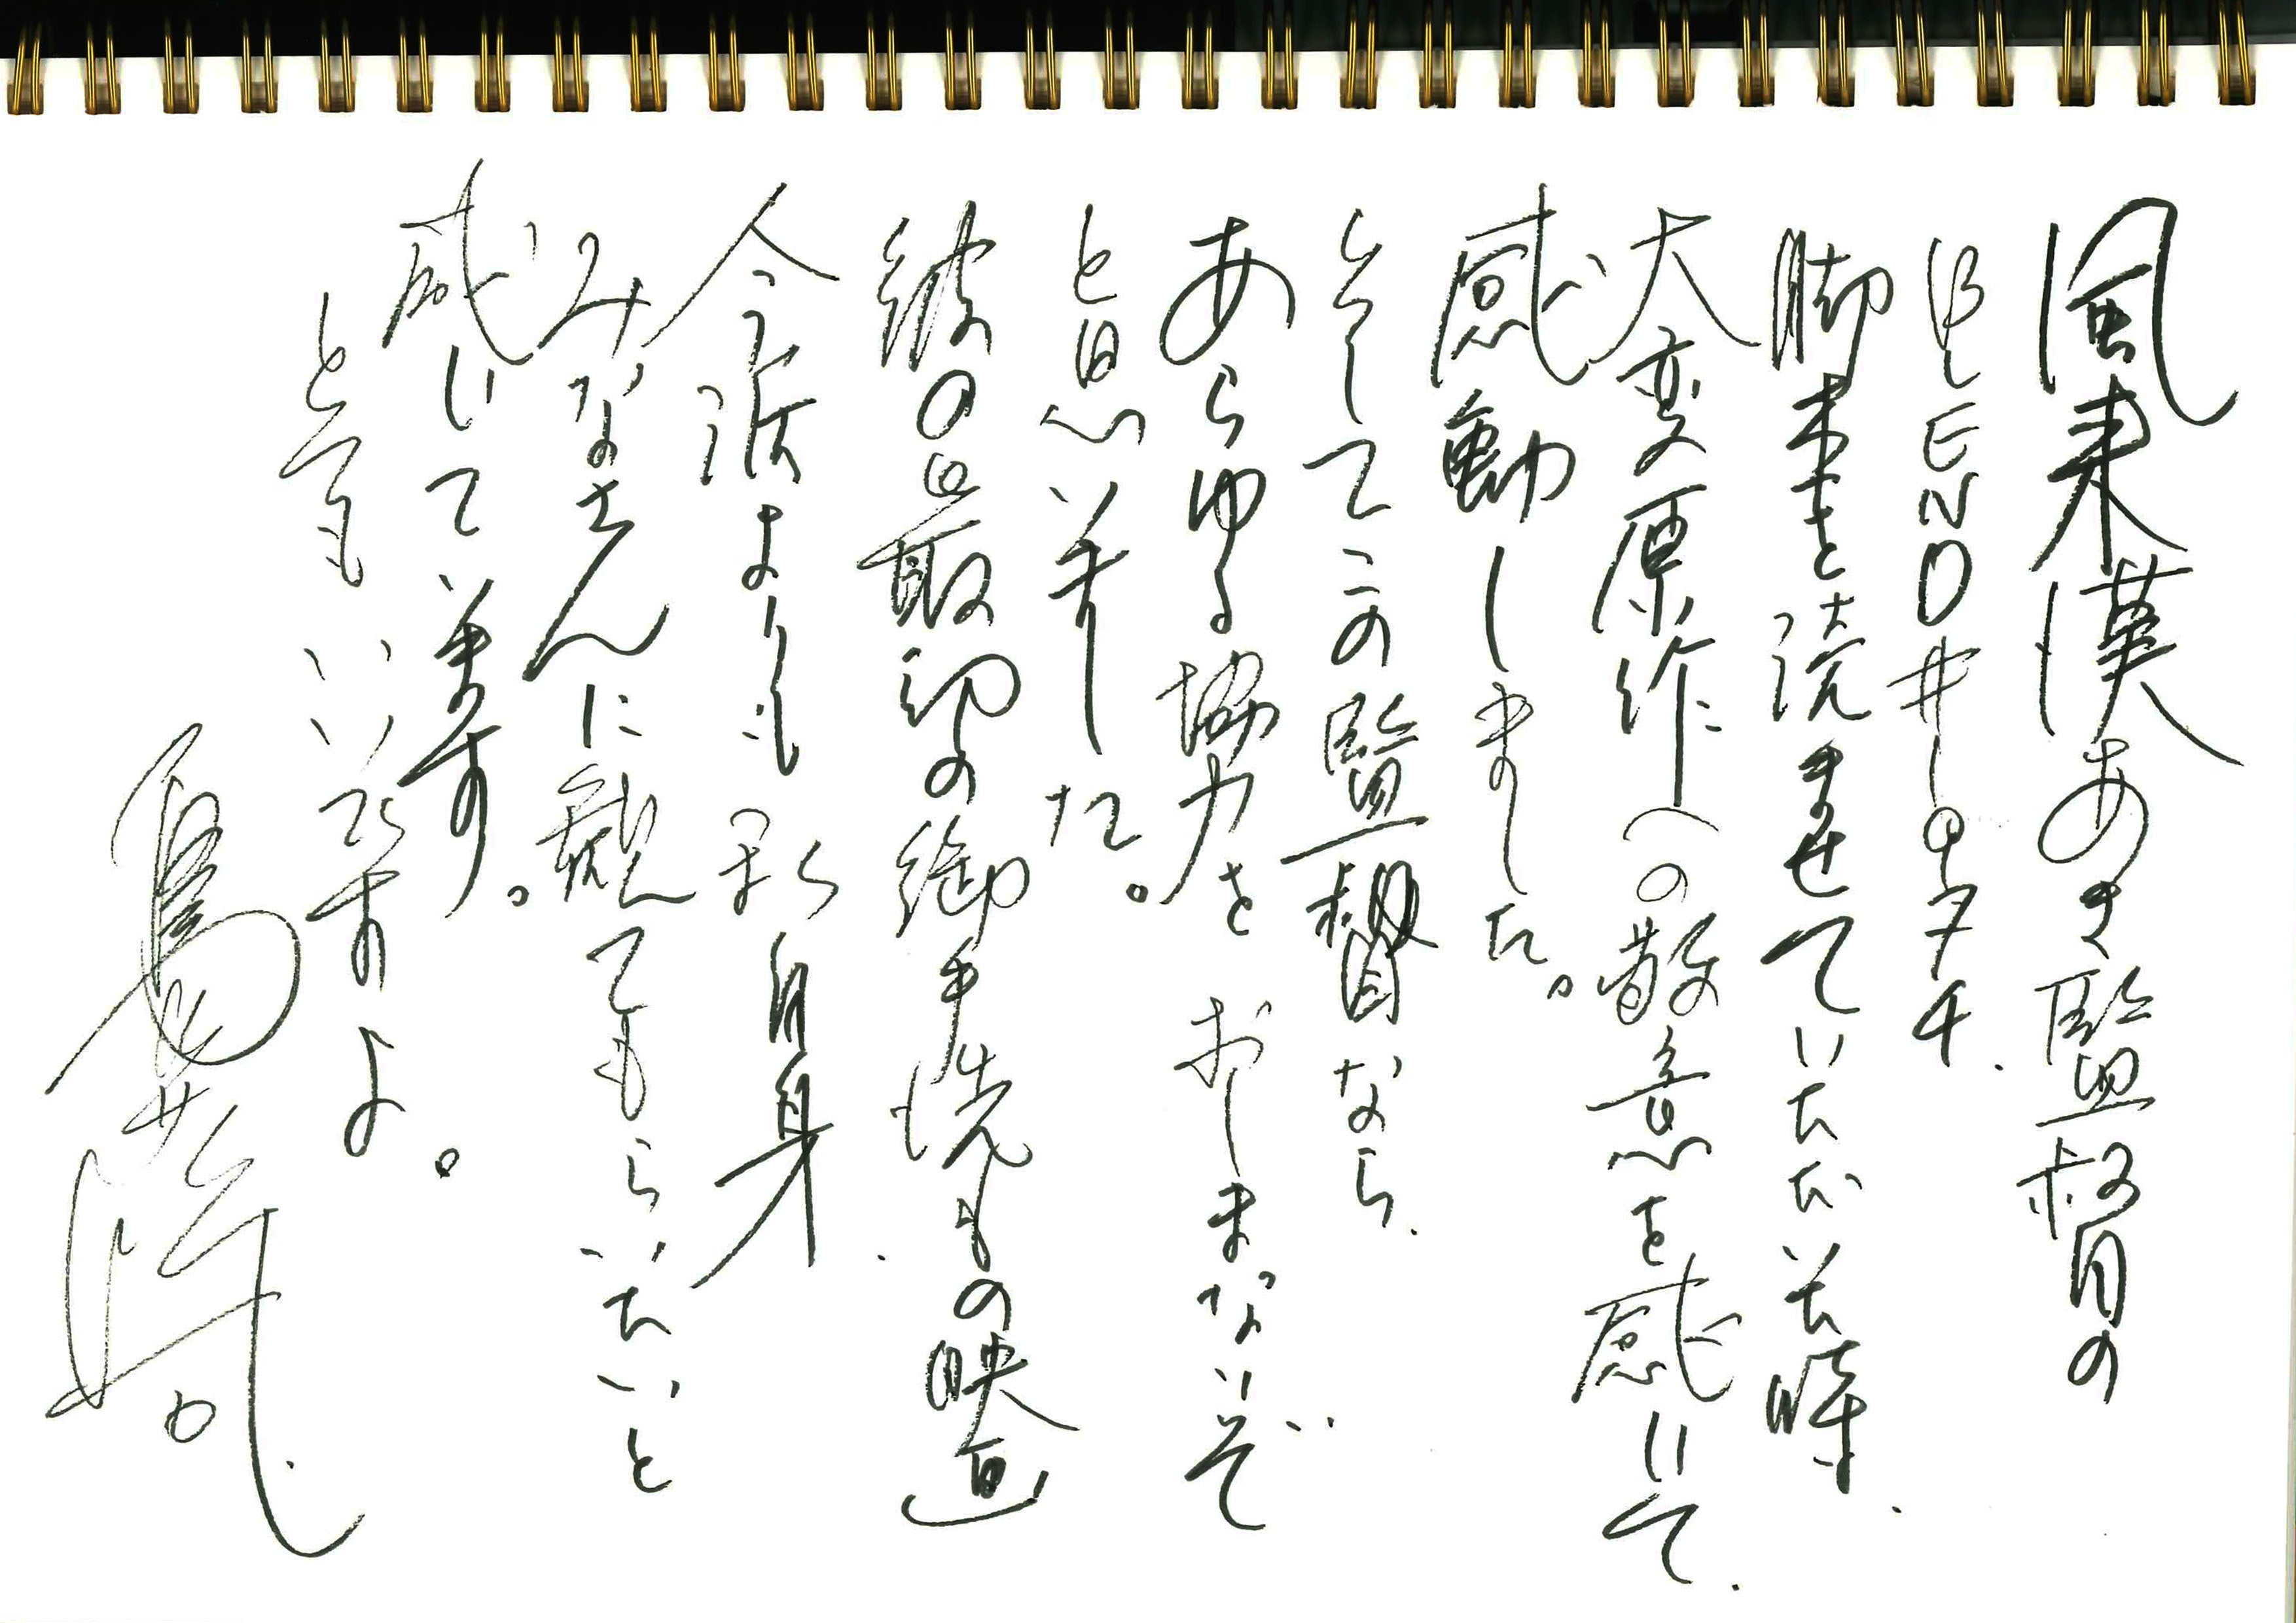 風来漢あき監督の
BLEND井トタチ、
脚本を読ませていただいた時、
大変原作への敬意を感じて、
感動しました。
そしてこの監督なら、
あらゆる協力をおしまないぞ
と思いました。
彼の最初の御手洗もの映画、
今誰よりも私自身
みなさんに観てもらいたいと
感じています。
とてもいいですよ。
島荘司